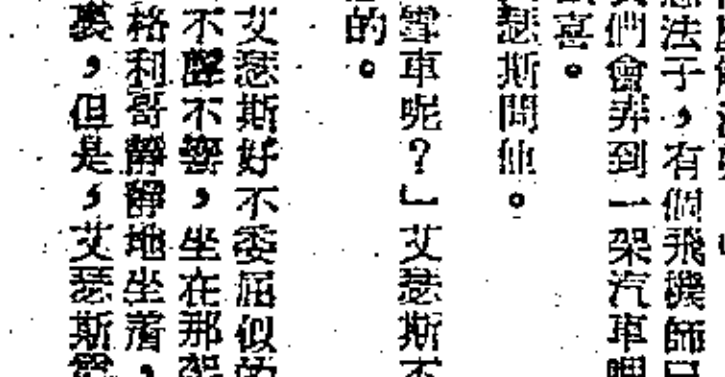 法子，有個飛機師
們會弄到一架汽車
喜。
瑟斯問他。
雪車呢？」艾瑟斯不
的。
艾瑟斯好不委屈似的
不聲不響，坐在那
格利哥靜靜地坐着，
裏，但是，艾瑟斯